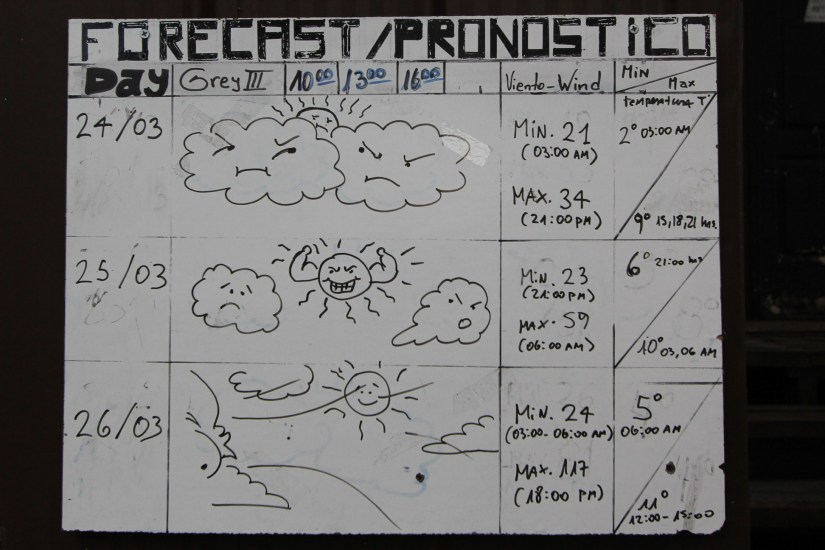 FORECAST/PRONOSTICO
DAY Grey III 10 00 13 00 16 00 Viento-Wind Min Max
temperatura T°
24/03
MiN. 21
(03:00 AM)
MAX. 34
(21:00 PM)
2° 03:00 AM
9° 15,18,21 hrs.
25/03
MiN. 23
(21:00 PM)
MAX. 59
(06:00 AM)
6° 21:00 hrs
10° 03,06 AM
26/03
MiN. 24
(03:00-06:00 AM)
MAX. 117
(18:00 PM)
5°
06:00 AM
11°
12:00-15:00